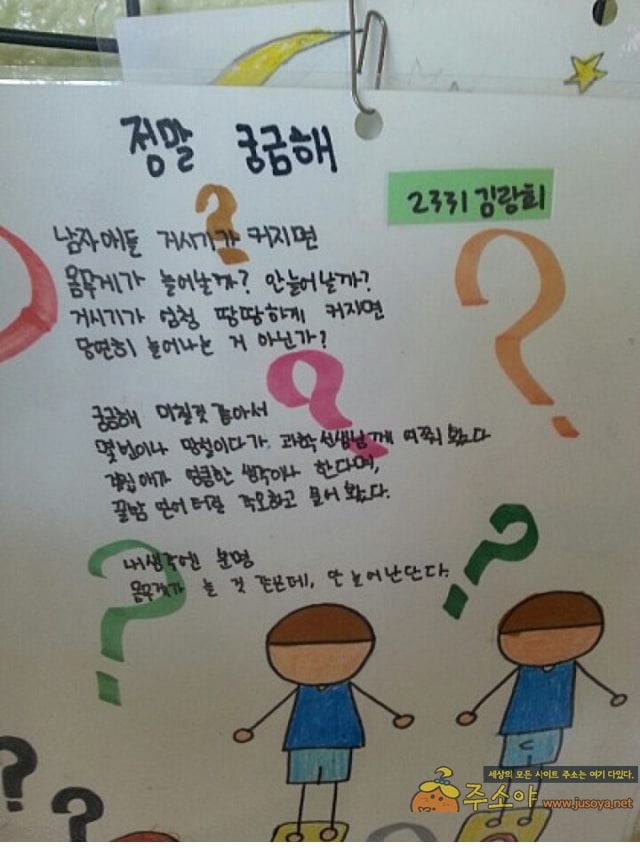 정말 궁금해
2331 김랑희
남자애들 거시기가 커지면
몸무게가 늘어날까? 안늘어날까?
거시기가 엄청 땅땅하게 커지면
당연히 늘어나는 거 아닌가?
궁금해 미칠것 같아서
몇번이나 망설이다가 과학선생님께 여쭤 봤다
계집애가 엉큼한 생각이나 한다며,
꿀밤 얻어터질 각오하고 물어 봤다.
내생각엔 분명
몸무게가 늘 것 같은데, 안 늘어난단다.
세상의 모든 사이트 주소는 여기 다있다.
주소야 www.jusoya.net